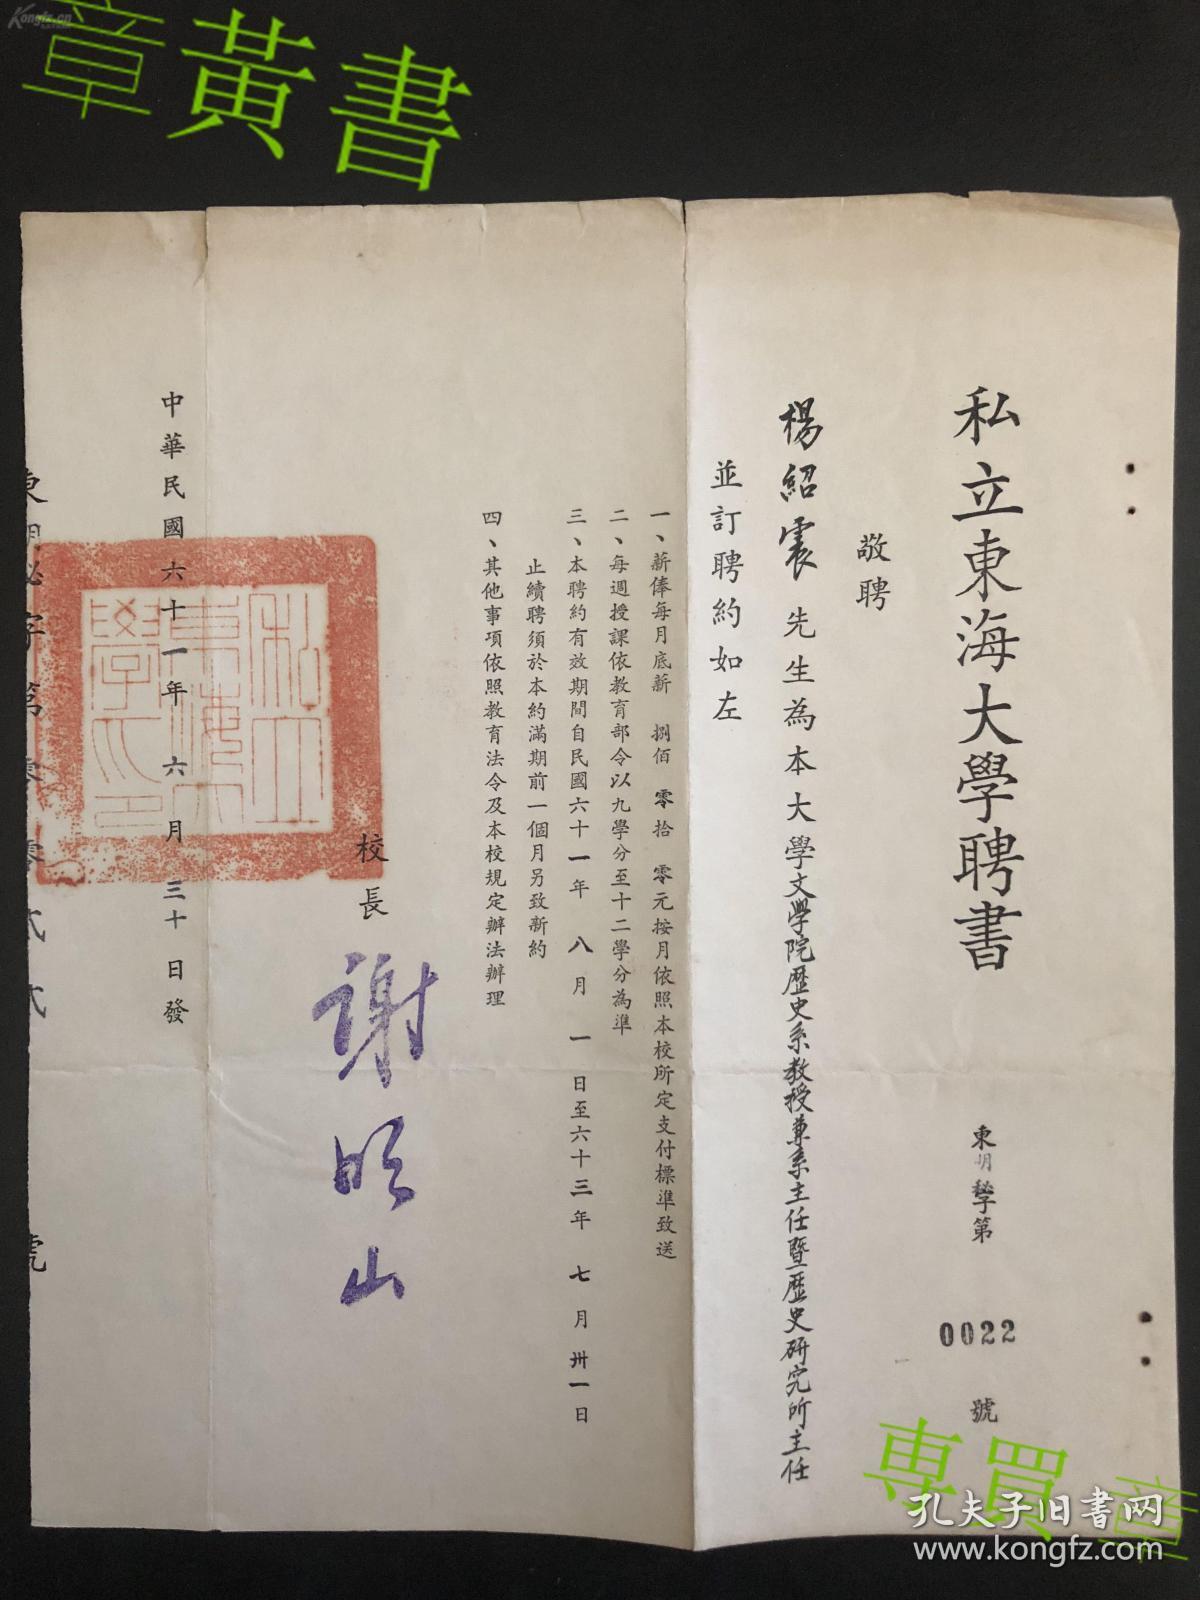 Kongfz.cn
章黃書
私立東海大學聘書
東明秘字第
0022
號
敬聘
楊紹震先生為本大學文學院歷史系教授兼系主任暨歷史研究所主任
並訂聘約如左
一、薪俸每月底薪 捌佰 零拾 零元按月依照本校所定支付標準致送
二、每週授課依教育部令以九學分至十二學分為準
三、本聘約有效期間自民國六十一年 八月 一日至六十三年 七月 卅一日
止續聘須於本約滿期前一個月另致新約
四、其他事項依照教育法令及本校規定辦法辦理
校長
謝明山
中華民國六十一年 六月 三十日發
私立東海大學之印
東明秘字第零零貳貳號
專買章
孔夫子旧书网
www.kongfz.com